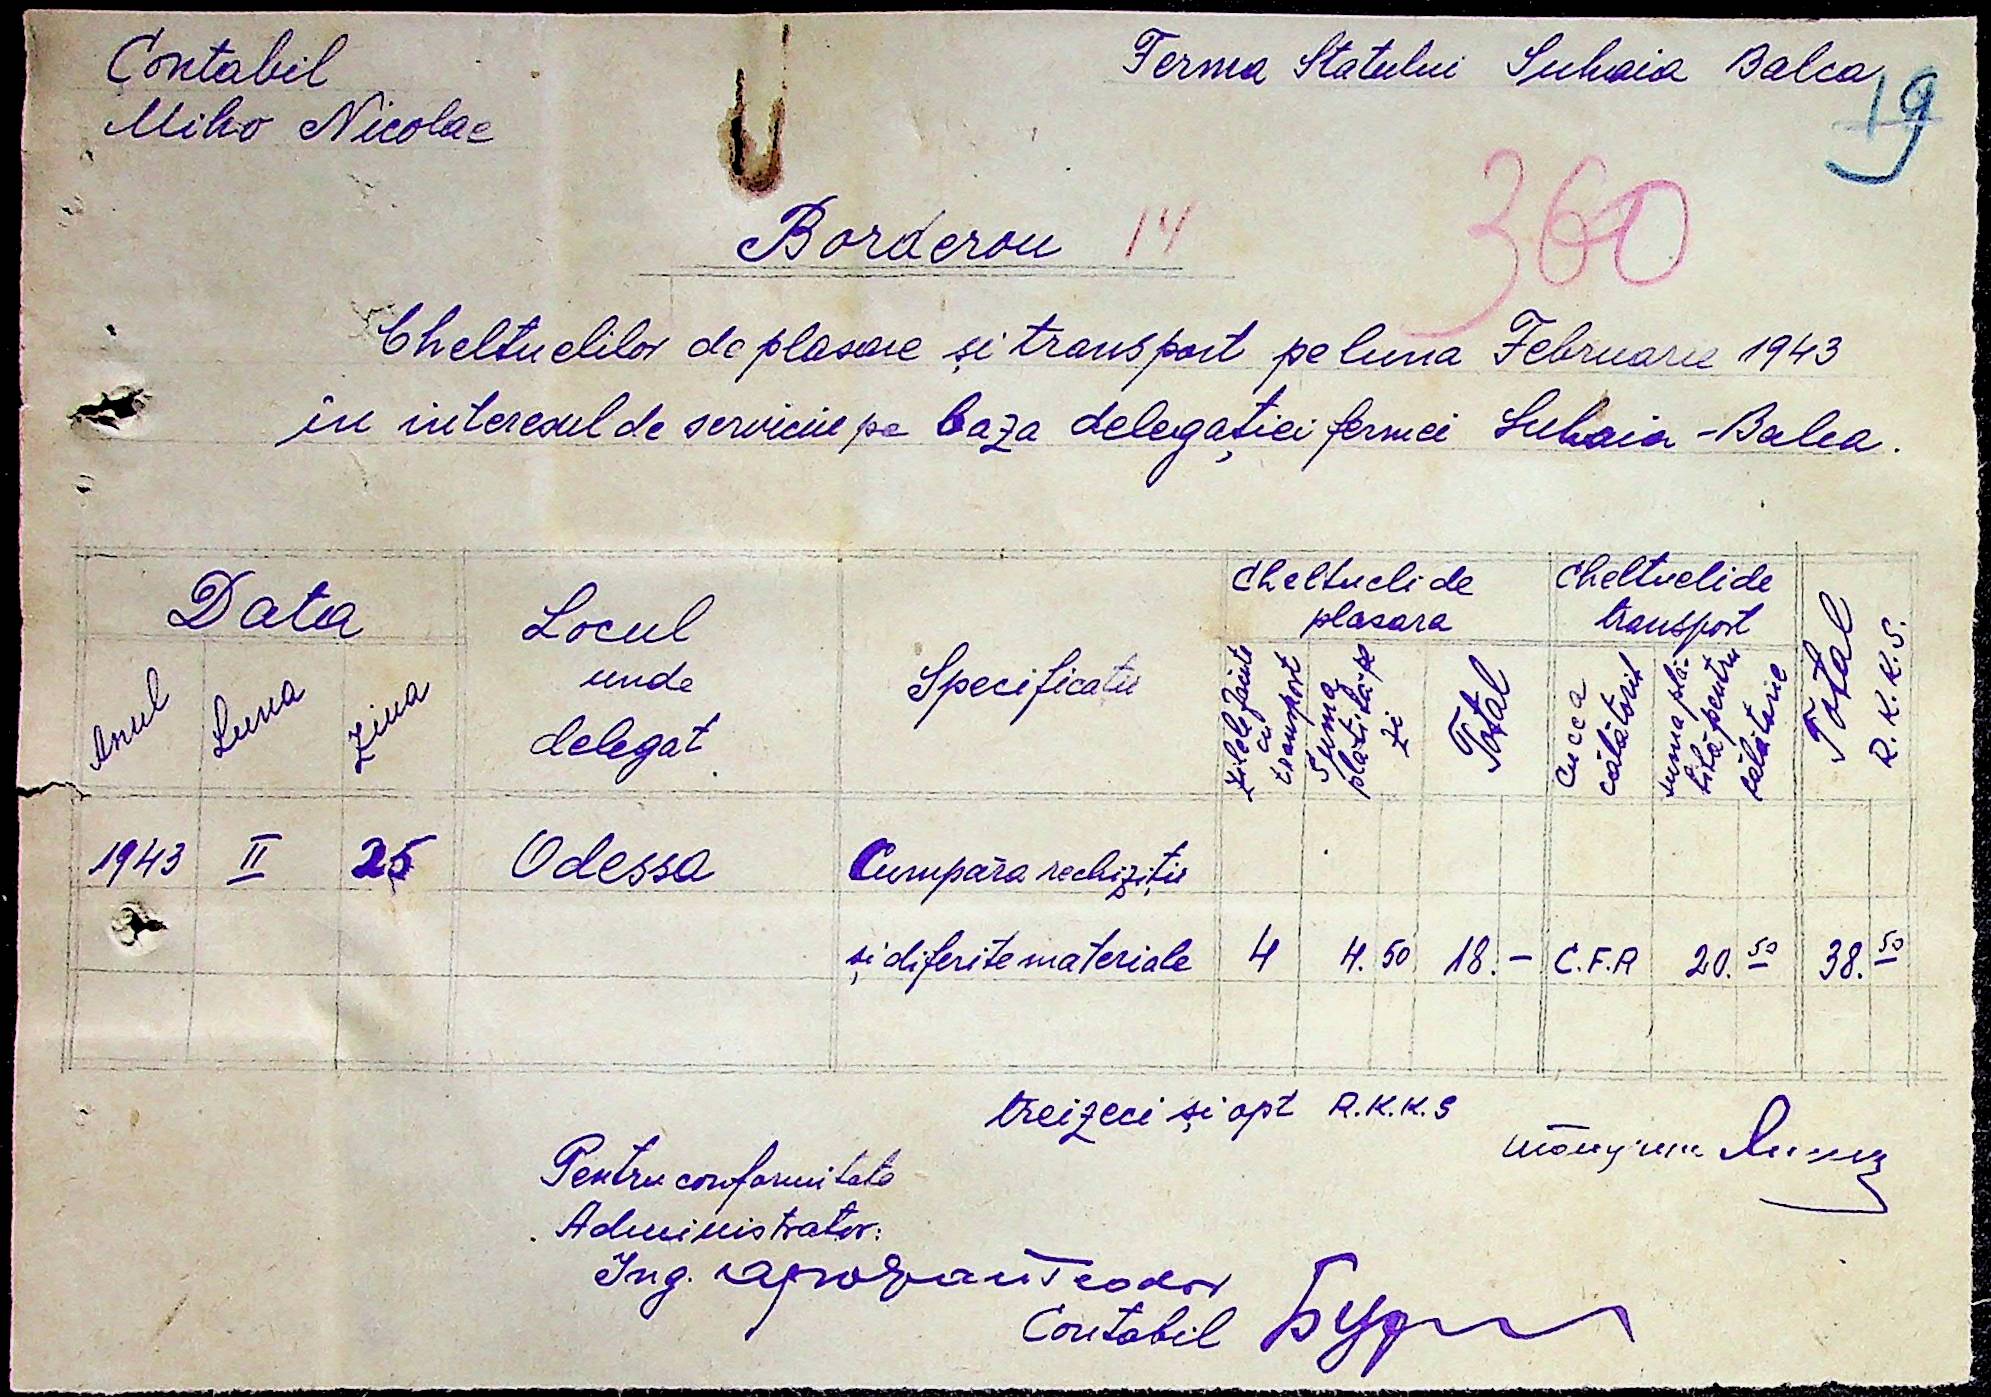 Contabil
Miho Nicolae
Ferma Statului Suhaia Balca
19
360
Borderou 14
Cheltuelilor de plasare și transport pe luna Februarie 1943
în interesul de serviciu pe baza delegației fermei Suhaia-Balca.
Data
Anul
Luna
Ziua
Locul
unde
delegat
Specificatii
Cheltueli de
plasara
Zilele
cu
transport
Suma
plătită pe
zi
Total
Cheltueli de
transport
Cu ce a
călătorit
suma plă-
tită pentru
călătorie
Total
R.K.K.S.
1943 II 25 Odessa Cumpăra rechiziții
și diferite materiale 4 4.50 18.- C.F.R 20.50 38.50
treizeci și opt R.K.K.S
Pentru conformitate
Administrator:
Ing. Teodor
Contabil